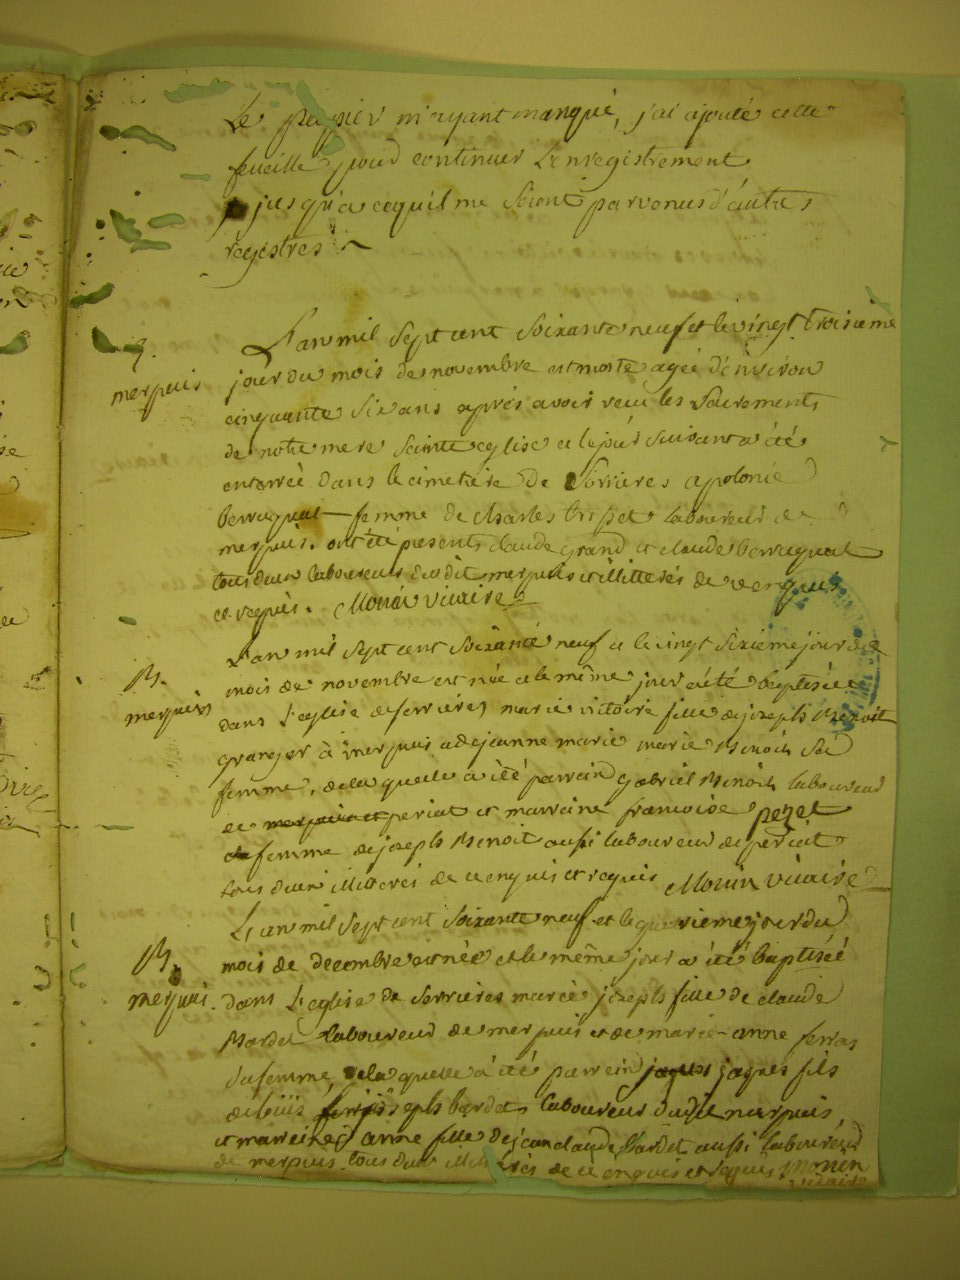 Le papier m'ayant manqué, j'ai ajouté cette
feueille pour continuer L'enregistrement
jusqu'a cequ'il me soient parvenus d'autres
régistres
L'an mil sept cent soixante neuf et le vingt troisieme
S.
merpuis
jour du mois de novembre est morte agée d'environ
cinquante six ans aprés avoir recu les sacrements
de notre mere sainte eglise et le jour suivant a été
enterrée dans le cimetiere de Serrieres apolonie
berruquat femme de charles laboureur de
merpuis. ont été presents claude grand et claude berruquat
tous deux laboureurs dudit merpuis illitterés de ce enquis
et requis. Monin vicaire
L'an mil sept cent soixante neuf et le vingt sixieme jour de
B.
merpuis
mois de novembre est née et le même jour a été baptisée
dans L'eglise de serrieres marie victoire fille de joseph Benoit
granger à merpuis et de jeanne marie Benoit sa
femme, de la quelle a été parrain gabriel Benoit laboureur
de periat et marreine francoise pezet
femme de joseph Benoit aussi laboureur de periat
tous deux illitterés de ce enquis et requis Monin vicaire
L'an mil sept cent soixante neuf et le jour du
B.
merpuis.
mois de decembre est née et le même jour a été baptisée
dans L'eglise de serrieres marie joseph fille de claude
Bardet laboureur de merpuis et de marie-anne ferras
sa femme, de la quelle a été parrein jaques fils
de joseph bardet, laboureur dudit merpuis
et marreine anne fille de jean claude Bardet aussi laboureur
de merpuis tous deux illitterés de ce enquis et requis Monin
vicaire